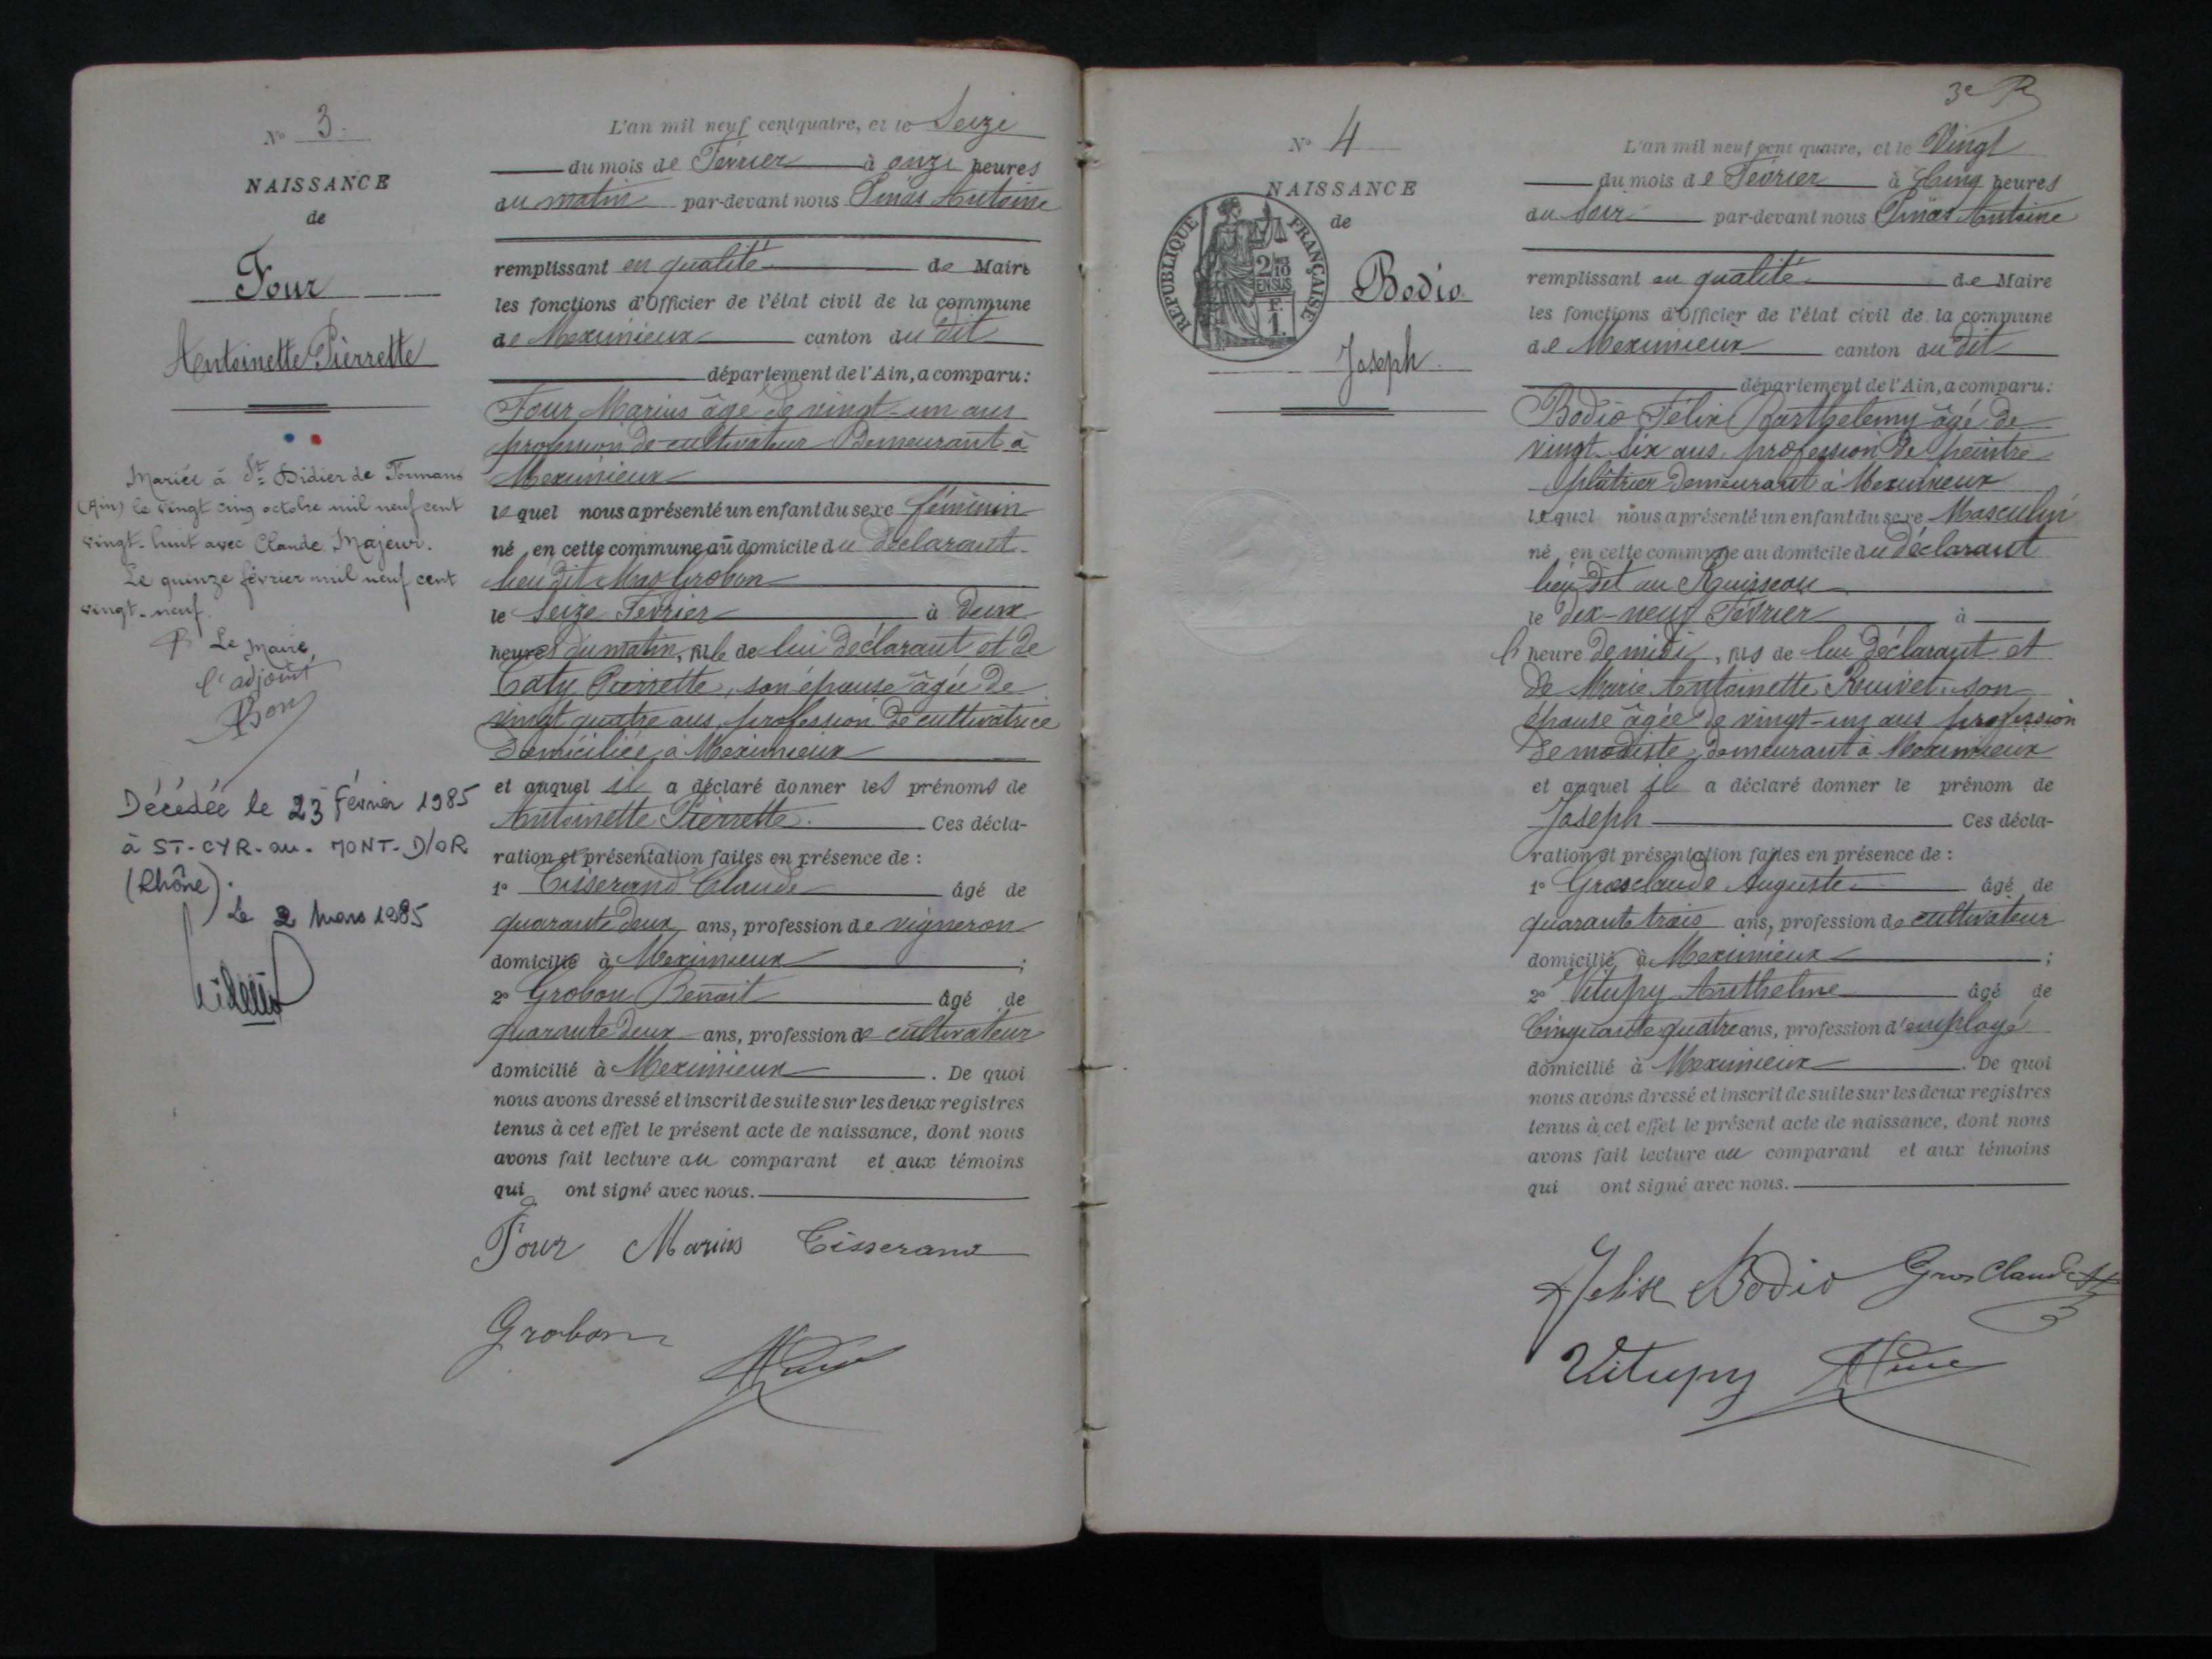 N° 3
NAISSANCE
de
Four
Antoinette Pierrette
Mariée à St Didier de Formans
(Ain) le vingt cinq octobre mil neuf cent
vingt-huit avec Claude Majeur.
Le quinze février mil neuf cent
vingt-neuf.
Le Maire,
l'adjoint
Décédée le 23 Février 1985
à ST-CYR-au-MONT-D'OR
(Rhône).
Le 2 Mars 1985
L'an mil neuf cent quatre, et le Seize
du mois de Février à onze heures
du matin par-devant nous Antoine
remplissant en qualité de Maire
les fonctions d'Officier de l'état civil de la commune
de Meximieux canton du dit
département de l'Ain, a comparu:
Four Marius âgé de vingt-un ans
profession de cultivateur Demeurant à
Meximieux
lequel nous a présenté un enfant du sexe féminin
né en cette commune au domicile du déclarant
lieu dit Mas Grobon
le Seize Février à deux
heures du matin, fille de lui déclarant et de
Caty Pierrette, son épouse âgée de
vingt quatre ans, profession de cultivatrice
domiciliée à Meximieux
et auquel il a déclaré donner les prénoms de
Antoinette Pierrette. Ces décla-
ration et présentation faites en présence de :
1° Tisserand Claude âgé de
quarante deux ans, profession de vigneron
domicilié à Meximieux ;
2° Grobon Benoit âgé de
quarante deux ans, profession de cultivateur
domicilié à Meximieux . De quoi
nous avons dressé et inscrit de suite sur les deux registres
tenus à cet effet le présent acte de naissance, dont nous
avons fait lecture au comparant et aux témoins
qui ont signé avec nous.
Four Marius Tisserand
Grobon
3e R
N° 4
NAISSANCE
de
REPUBLIQUE FRANÇAISE
2/10
EN SUS
F.
1.
Bodio
Joseph
L'an mil neuf cent quatre, et le Vingt
du mois de Février à Cinq heures
du Soir par-devant nous Antoine
remplissant en qualité de Maire
les fonctions d'Officier de l'état civil de la commune
de Meximieux canton du dit
département de l'Ain, a comparu:
Bodio Félix Barthelemy âgé de
vingt-six ans, profession de peintre
plâtrier Demeurant à Meximieux
lequel nous a présenté un enfant du sexe Masculin
né en cette commune au domicile du déclarant
lieu dit au Ruisseau
le dix-neuf Février à
l'heure de midi, fils de lui déclarant et
de Marie Antoinette son
épouse âgée de vingt-un ans profession
de modiste, demeurant à Meximieux
et auquel il a déclaré donner le prénom de
Joseph Ces décla-
ration et présentation faites en présence de :
1° Grosclaude Auguste âgé de
quarante trois ans, profession de cultivateur
domicilié à Meximieux ;
2° Vitupy Anthelme âgé de
Cinquante quatre ans, profession d'employé
domicilié à Meximieux . De quoi
nous avons dressé et inscrit de suite sur les deux registres
tenus à cet effet le présent acte de naissance, dont nous
avons fait lecture au comparant et aux témoins
qui ont signé avec nous.
Felix Bodio Gros Claude
Vitupy